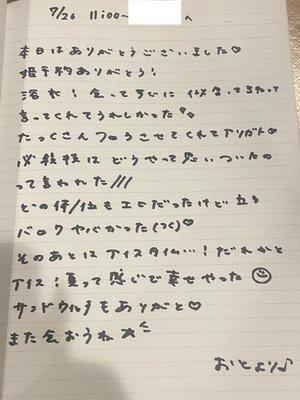 7/26 11:00~ へ
本日はありがとうございました♡
姫予約ありがとう!
浴衣!会ってすぐに似合ってるって
言ってくれてうれしかった
たっくさんフロうさせてくれてアリガト♡
必殺技はどうやって思いついたの
って言われた///
どの体位もエロだったけど立ち
バックヤバかった(つく)♡
そのあとはアイスタイム…!だれかと
アイス!夏って感じで幸せやった☺
サンドウィッチもありがと♡
また会おうね
おとより♪